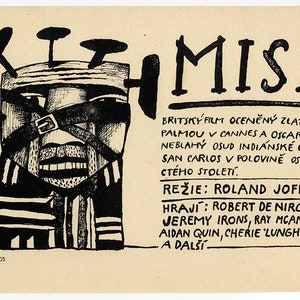 MIS
BRITSKÝ FILM OCENĚNÝ ZLA
PALMOU V CANNES A OSCAR
NEBLAHÝ OSUD INDIÁNSKÉ O
SAN CARLOS V POLOVINĚ OS
CTÉHO STOLETÍ.
REŽIE: ROLAND JOFF
HRAJÍ: ROBERT DE NIRO
JEREMY IRONS, RAY MCAN
AIDAN QUIN, CHERIE LUNGH
A DALŠÍ